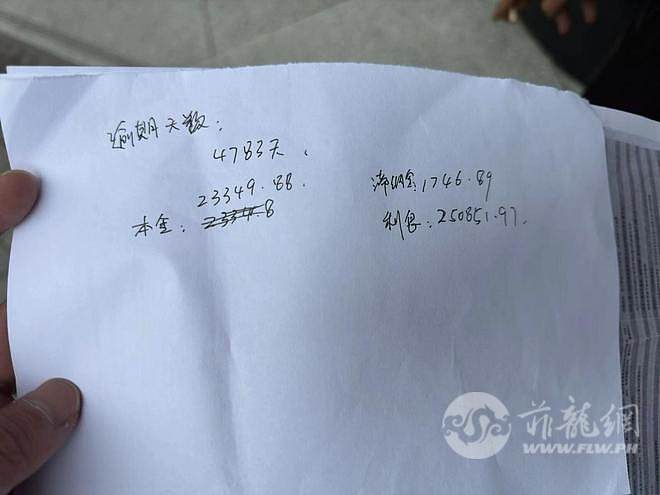 逾期天数:
4783天.
23349.88.
本金: 23348
滞纳金1746.89
利息:250851.97.
菲龍網
WWW.FLW.PH